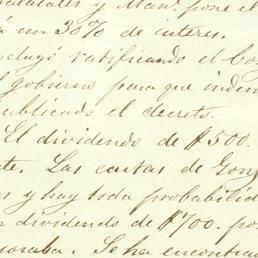 y Man. pone el
á un 30% de interes.
cluyó ratificando el Co
l gobierno para que indem
ublicado el decreto.
El dividendo de $500.
te. Las cartas de Gonz
as y hay toda probabilid
n dividendo de $700. por
Se ha encontrad